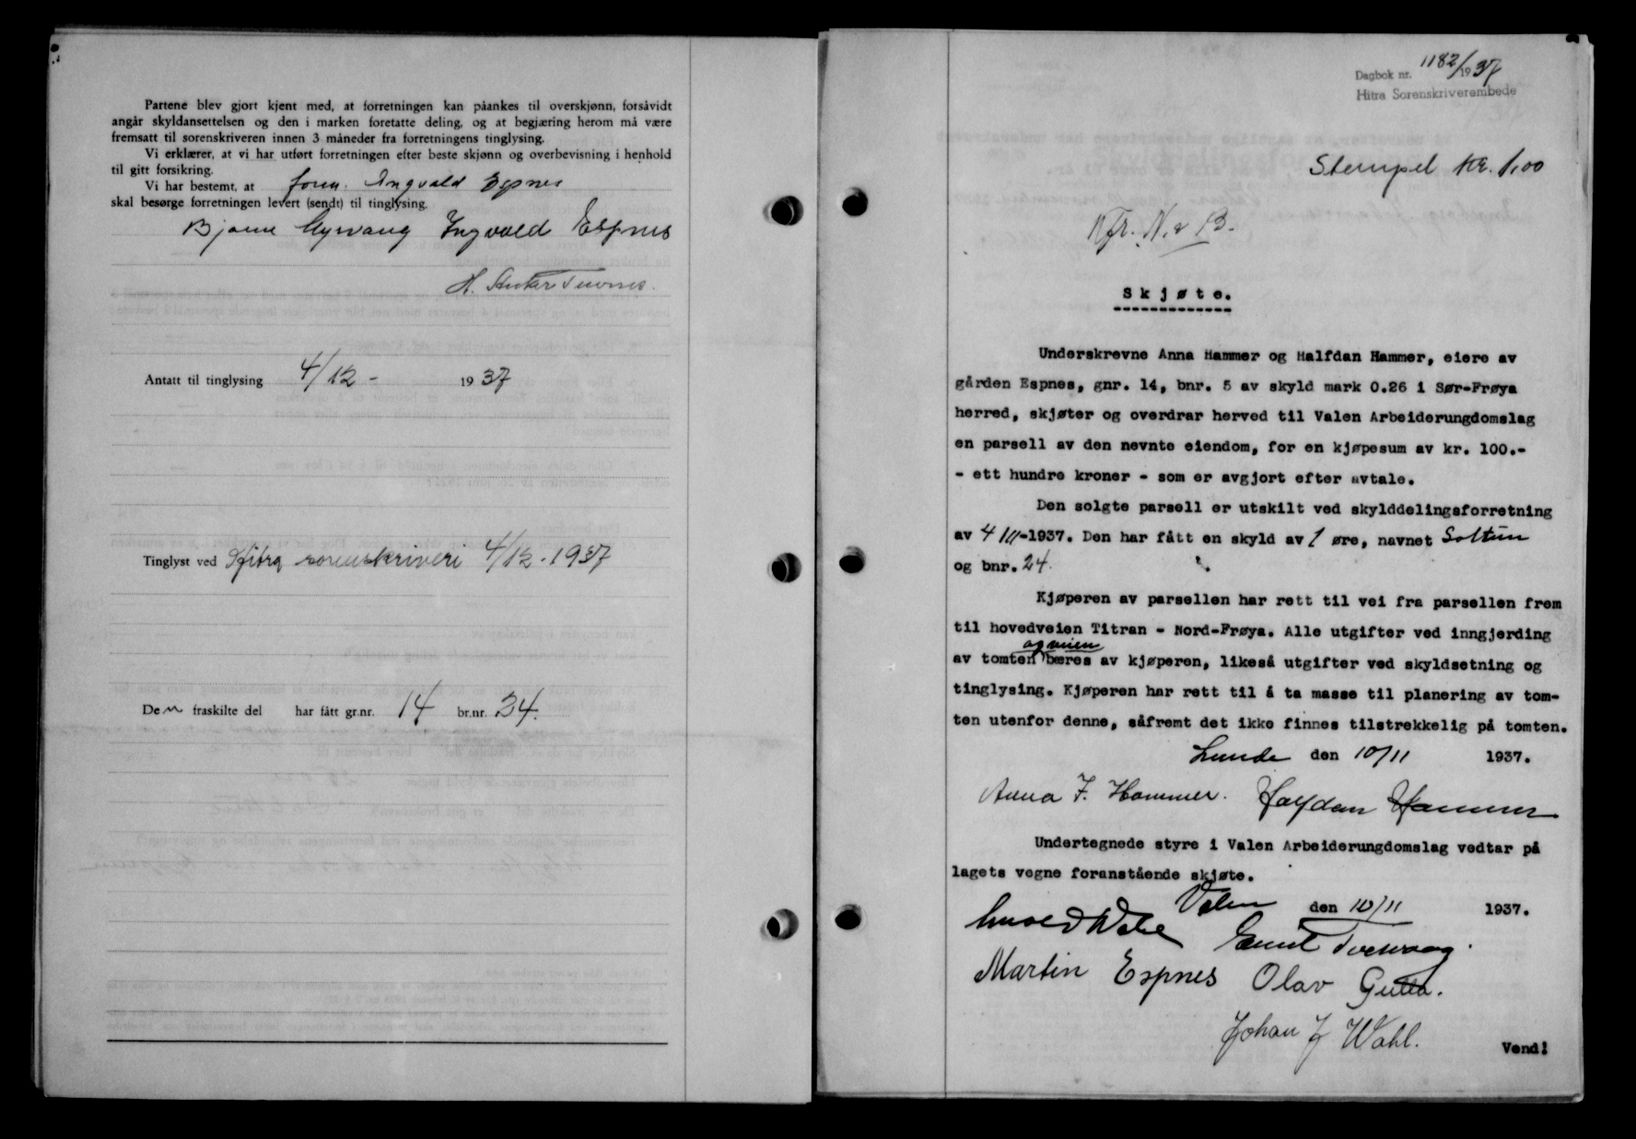 Partene blev gjort kjent med, at forretningen kan påankes til overskjønn, forsåvidt
angår skyldansettelsen og den i marken foretatte deling, og at begjæring herom må være
fremsatt til sorenskriveren innen 3 måneder fra forretningens tinglysing.
Vi erklærer, at vi har utført forretningen efter beste skjønn og overbevisning i henhold
til gitt forsikring.
Vi har bestemt, at form. Ingvald Espnes
skal besørge forretningen levert (sendt) til tinglysing.
Bjarne Myrvang Ingvald Espnes
Antatt til tinglysing 4/12 - 1937
Tinglyst ved Hitra sorenskriveri 4/12-1937
Den fraskilte del har fått gr.nr. 14 br.nr. 24.
Dagbok nr. 1182/1937
Hitra Sorenskriverembede
Stempel kr. 1,00
Skjøte.
Underskrevne Anna Hammer og Halfdan Hammer, eiere av
gården Espnes, gnr. 14, bnr. 5 av skyld mark 0.26 i Sør-Frøya
herred, skjøter og overdrar herved til Valen Arbeiderungdomslag
en parsell av den nevnte eiendom, for en kjøpesum av kr. 100.-
- ett hundre kroner - som er avgjort efter avtale.
Den solgte parsell er utskilt ved skylddelingsforretning
av 4/11-1937. Den har fått en skyld av 1 øre, navnet Soltun
og bnr. 24.
Kjøperen av parsellen har rett til vei fra parsellen frem
til hovedveien Titran - Nord-Frøya. Alle utgifter ved inngjerding
av tomten og veien bæres av kjøperen, likeså utgifter ved skyldsetning og
tinglysing. Kjøperen har rett til å ta masse til planering av tom-
ten utenfor denne, såfremt det ikke finnes tilstrekkelig på tomten.
Lunde den 10/11 1937.
Anna F. Hammer. Halfdan Hammer
Undertegnede styre i Valen Arbeiderungdomslag vedtar på
lagets vegne foranstående skjøte.
Valen den 10/11 1937.
Martin Espnes Olav
Johan J Wahl.
Vend!